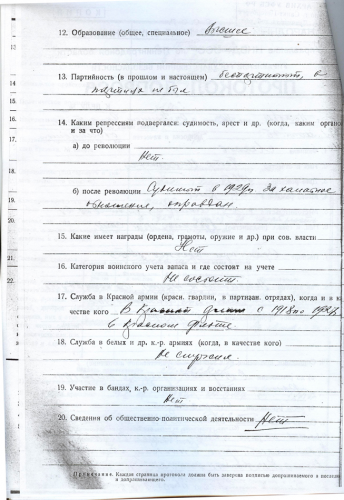 12. Образование (общее, специальное) Высшее
13. Партийность (в прошлом и настоящем) беспартийный, в
партиях не был
14. Каким репрессиям подвергался: судимость, арест и др. (когда, каким орган
и за что)
а) до революции
Нет.
б) после революции Судимый в 1929г за халатное
отношение, оправдан
15. Какие имеет награды (ордена, грамоты, оружие и др.) при сов. власти
Нет
16. Категория воинского учета запаса и где состоит на учете
Не состоит
17. Служба в Красной армии (красн. гвардии, в партизан. отрядах), когда и в ка
честве кого В Красной с 1918 по
в Красном флоте
18. Служба в белых и др. к.-р. армиях (когда, в качестве кого)
Не служил.
19. Участие в бандах, к.-р. организациях и восстаниях
Нет
20. Сведения об общественно-политической деятельности Нет
Примечание. Каждая страница протокола должна быть заверена подписью допрашиваемого и
и допрашивающего.